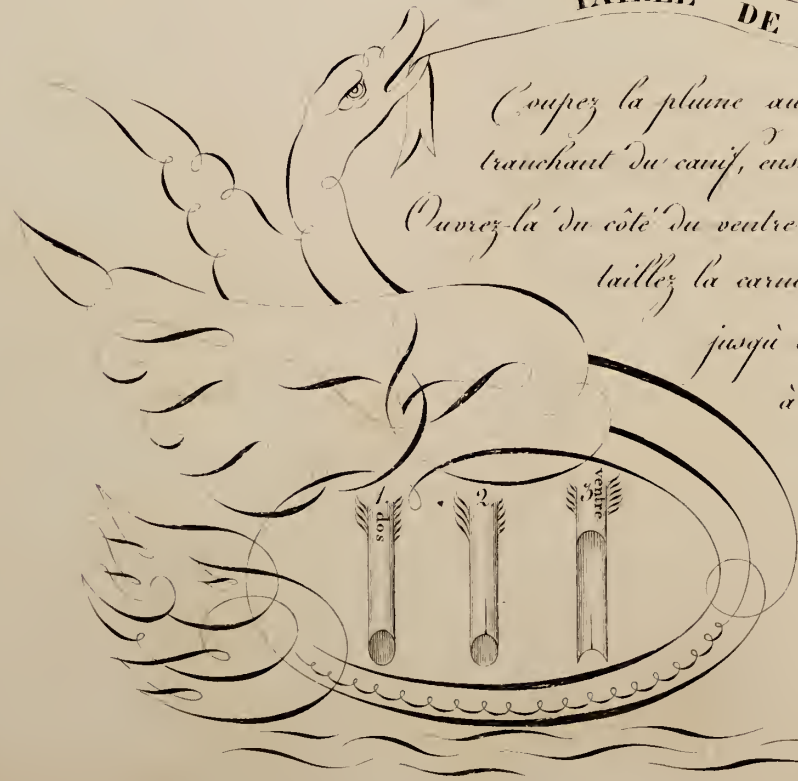 TAILLE DE
Coupez la plume au
tranchant du canif, ens
Ouvrez-la du côté du ventre
taillez la carn
jusqu'à
à
1. dos
2.
3. ventre